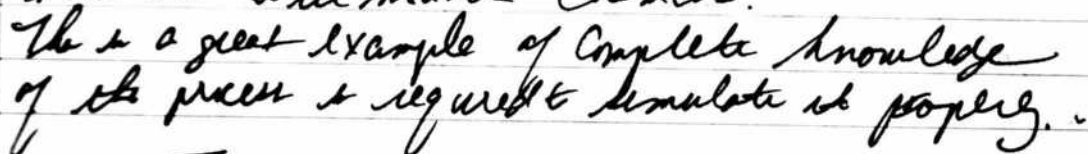 This is a great example of Complete knowledge
of the process is required to simulate it properly.